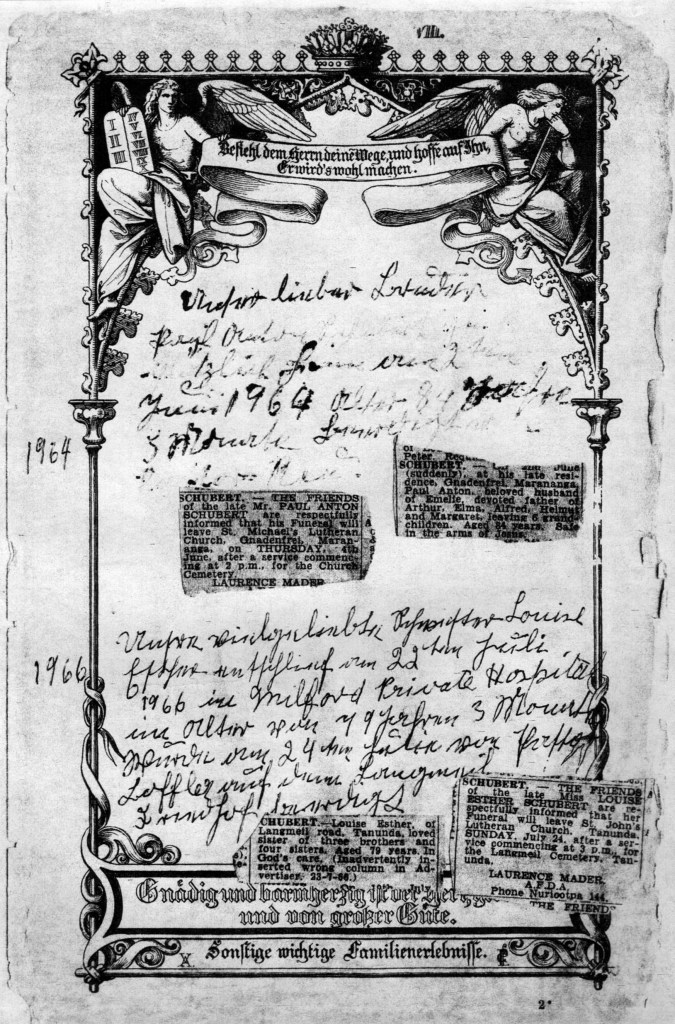 VIII.
Befiehl dem Herrn deine Wege, und hoffe auf Ihn,
Er wird's wohl machen.
Unser lieber Bruder
Paul Anton
am 2 ten
Juni 1964 Alter 84 Jahre
3 Monate
1964
of
Peter
SCHUBERT. — June
(suddenly), at his late resi-
dence, Gnadenfrei, Marananga,
Paul Anton, beloved husband
of Emelie, devoted father of
Arthur, Elma, Alfred, Helmut
and Margaret, leaving 6 grand-
children. Aged 84 years. Safe
in the arms of Jesus.
SCHUBERT. — THE FRIENDS
of the late Mr. PAUL ANTON
SCHUBERT are respectfully
informed that his Funeral will
leave St. Michael's Lutheran
Church, Gnadenfrei, Maran-
anga, on THURSDAY, 4th
June, after a service commenc-
ing at 2 p.m., for the Church
Cemetery.
LAURENCE MADER
1966
Unsre vielgeliebte Schwester Louise
Esther entschlief am 22ten Juli
1966 im Milford Private Hospital
im Alter von 79 Jahren 3 Monate
Wurde am 24 ten Juli von Pastor
auf dem Langmeil
Friedhof beerdigt
SCHUBERT. — THE FRIENDS
of the late Miss LOUISE
ESTHER SCHUBERT are re-
spectfully informed that her
Funeral will leave St. John's
Lutheran Church, Tanunda,
SUNDAY, July 24, after a ser-
vice commencing at 3 p.m., for
the Langmeil Cemetery, Tan-
unda.
LAURENCE MADER,
A.F.D.A.
Phone Nuriootpa 144.
THE FRIEND
CHUBERT.—Louise Esther, of
Langmeil road, Tanunda, loved
sister of three brothers and
four sisters. Aged 79 years. In
God's care. (Inadvertently in-
serted wrong column in Ad-
vertiser, 23-7-66.)
Gnädig und barmherzig ist der
und von großer Güte.
Sonstige wichtige Familienerlebnisse.
2*